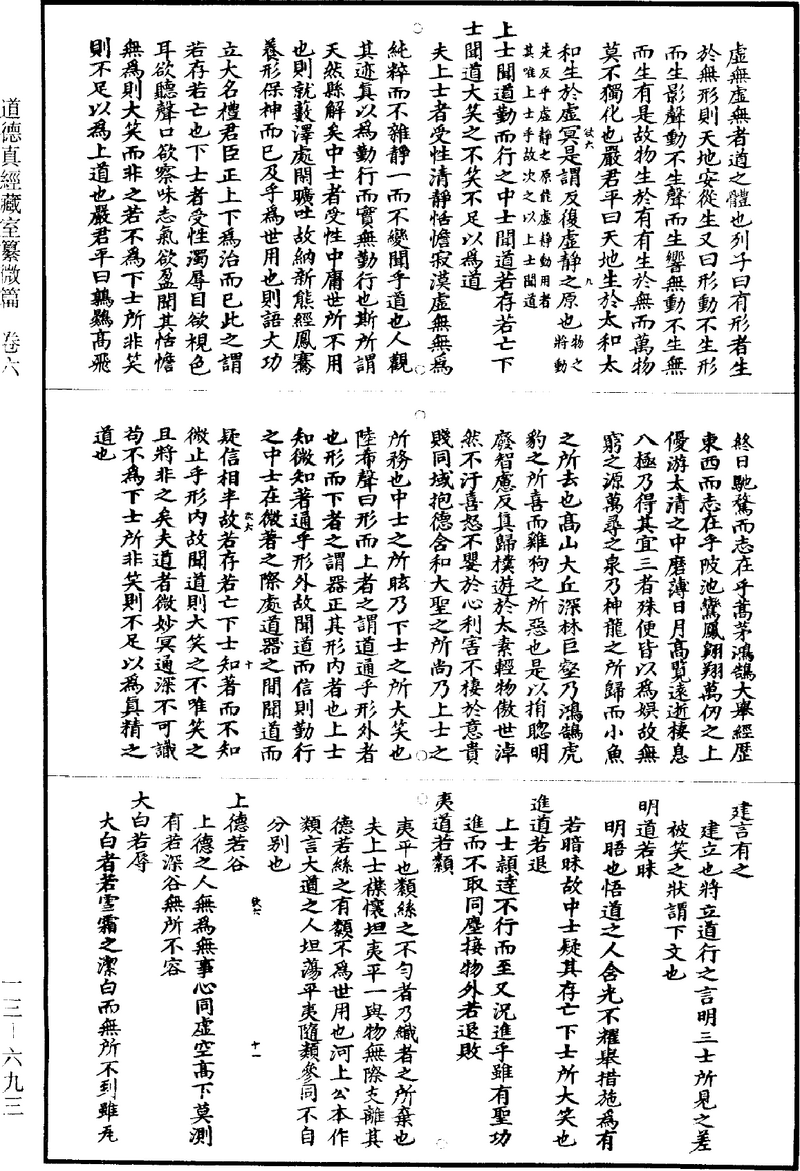 虛無虛無者道之體也列子曰有形者生
於無形則天地安從生又曰形動不生形
而生影聲動不生聲而生響無動不生無
而生有是故物生於有有生於無而萬物
莫不獨化也嚴君平曰天地生於太和太
和生於虛冥是謂反復虛靜之原也物之將動
先反乎虛靜之原能虛靜動用者
其唯上士乎故次之以上士聞道
上士聞道勤而行之中士聞道若存若亡下
士聞道大笑之不笑不足以為道
夫上士者受性清靜恬憺寂漠虛無無為
純粹而不雜靜一而不變聞乎道也人觀
其迹真以為勤行而實無勤行也斯所謂
天然縣解矣中士者受性中庸世所不用
也則就藪澤處閑曠吐故納新熊經鳳騫
養形保神而已及乎為世用也則語大功
立大名禮君臣正上下為治而已此之謂
若存若亡也下士者受性濁辱目欲視色
耳欲聽聲口欲察味志氣欲盈聞其恬憺
無為則大笑而非之若不為下士所非笑
則不足以為上道也嚴君平曰鶉鷃高飛
終日馳騖而志在乎蒿茅鴻鵠大舉經歷
東西而志在乎陂池鸞鳳翱翔萬仞之上
優游太清之中磨薄日月高覽遠逝棲息
八極乃得其宜三者殊便皆以為娛故無
窮之源萬尋之泉乃神龍之所歸而小魚
之所去也高山大丘深林巨壑乃鴻鵠虎
豹之所喜而雞狗之所惡也是以捐聰明
廢智慮反真歸樸遊於太素輕物傲世淖
然不汙喜怒不嬰於心利害不棲於意貴
賤同域抱德含和大聖之所尚乃上士之
所務也中士之所眩乃下士之所大笑也
陸希聲曰形而上者之謂道通乎形外者
也形而下者之謂器正其形內者也上士
知微知著通乎形外故聞道而信則勤行
之中士在微著之際處道器之間聞道而
疑信相半故若存若亡下士知著而不知
微止乎形內故聞道則大笑之不唯笑之
且將非之矣夫道者微妙冥通深不可識
苟不為下士所非笑則不足以為真精之
道也
建言有之
建立也將立道行之言明三士所見之差
被笑之狀謂下文也
明道若昧
明晤也悟道之人含光不耀舉措施為有
若暗昧故中士疑其存亡下士所大笑也
進道若退
上士頴達不行而至又況進乎雖有聖功
進而不取同塵接物外若退敗
夷道若纇
夷平也纇絲之不勻者乃織者之所棄也
夫上士襟懷坦夷平一與物無際支離其
德若絲之有纇不為世用也河上公本作
類言大道之人坦蕩平夷隨類參同不自
分別也
上德若谷
上德之人無為無事心同虛空高下莫測
有若深谷無所不容
大白若辱
大白者若雪霜之潔白而無所不到雖汚
道德真經藏室纂微篇 卷六
一三—六九三
欲六
九
欲六
十
欲六
十一